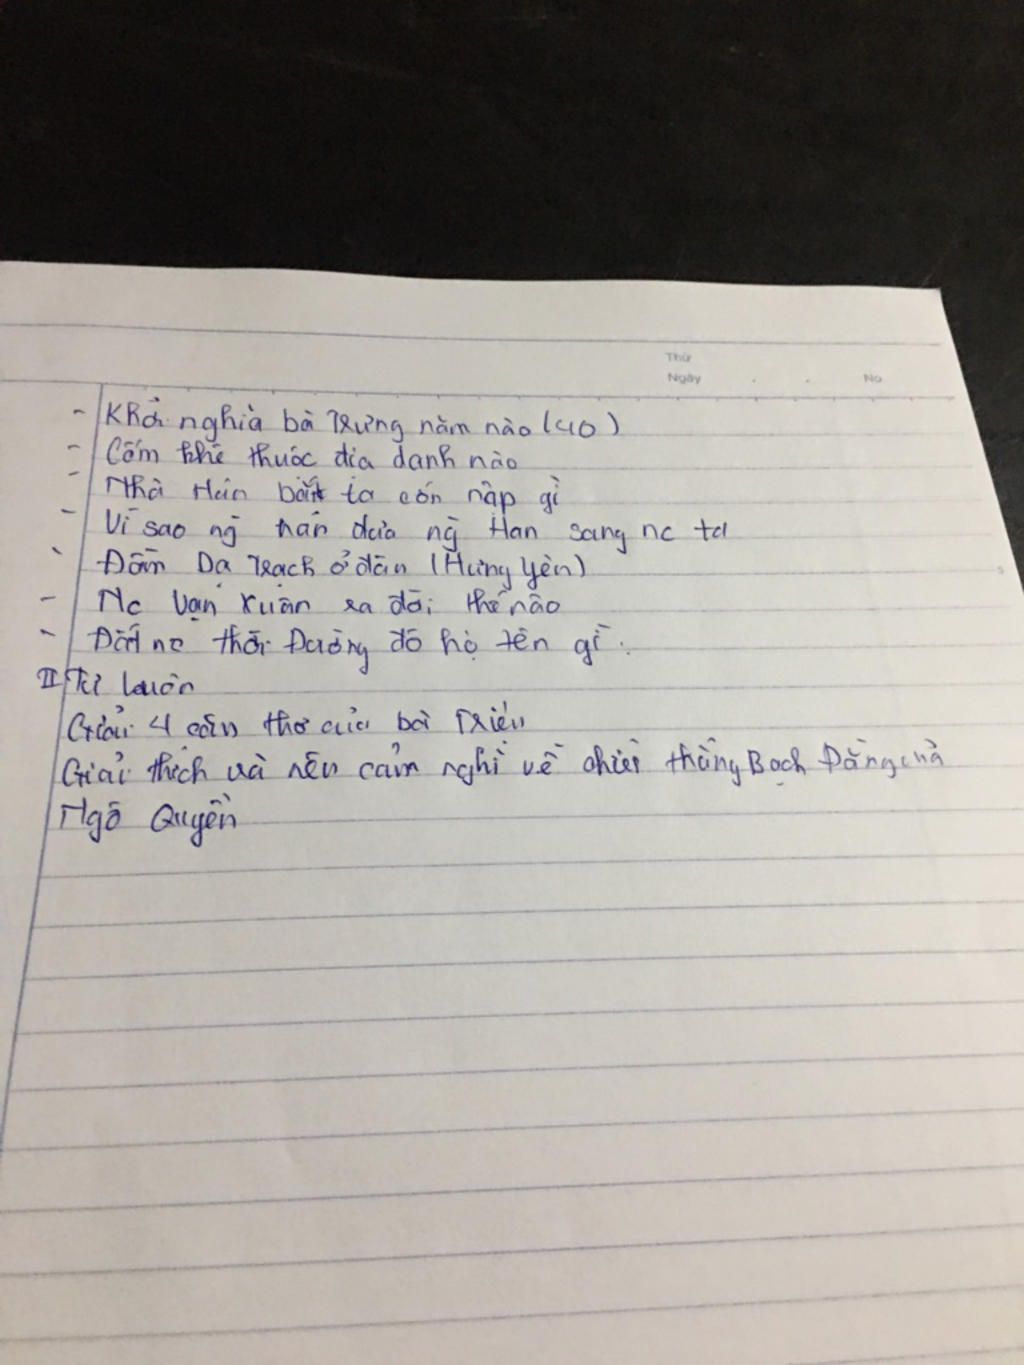 Thứ
Ngày . . No
- Khởi nghĩa bà Trưng năm nào (40)
- Cấm khê thuộc địa danh nào
- Nhà Hán bắt ta cón nập gì
- Vì sao ng hán đưa ng Han sang nc ta
- Đầm Dạ Trạch ở đâu (Hưng Yên)
- Nc Vạn Xuân ra đời thế nào
- Đất nc thời Đường đô hộ tên gì.
II Tự luận
Giải 4 câu thơ của bà Triệu
Giải thích và nêu cảm nghĩ về chiến thắng Bạch Đằng của
Ngô Quyền